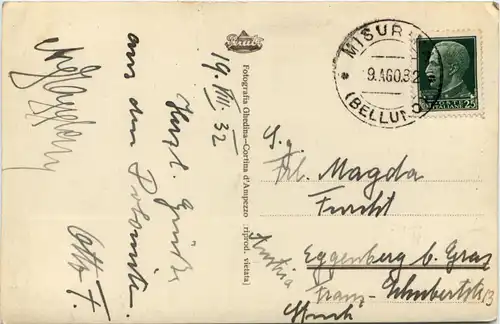 19. VIII. 32
Herzl. Grüße
aus den Dolomiten.
Otto F.
Fotografia Ghedina-Cortina d'Ampezzo
(riprod. vietata)
MISUR
9.AGO.32
(BELLUNO)
POSTE ITALIANE
25
Frl. Magda
Furcht
Eggenberg b. Graz
Franz-Schubertstr. 3
Austria